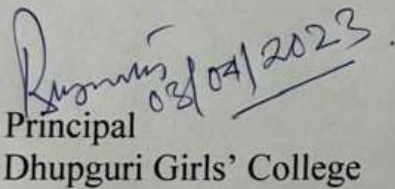 03/04/2023
Principal
Dhupguri Girls' College